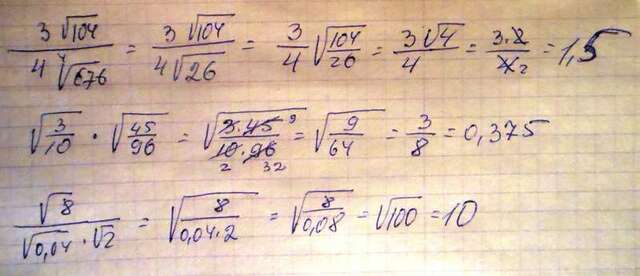 3√104 / 4 ⁴√676 = 3√104 / 4√26 = 3/4 √(104/26) = 3√4 / 4 = 3·2 / 4 2 = 1,5
√(3/10) · √(45/96) = √(3·45 9 / 10·96 2 32) = √(9/64) = 3/8 = 0,375
√8 / √0,04 · √2 = √(8 / 0,04·2) = √(8 / 0,08) = √100 = 10